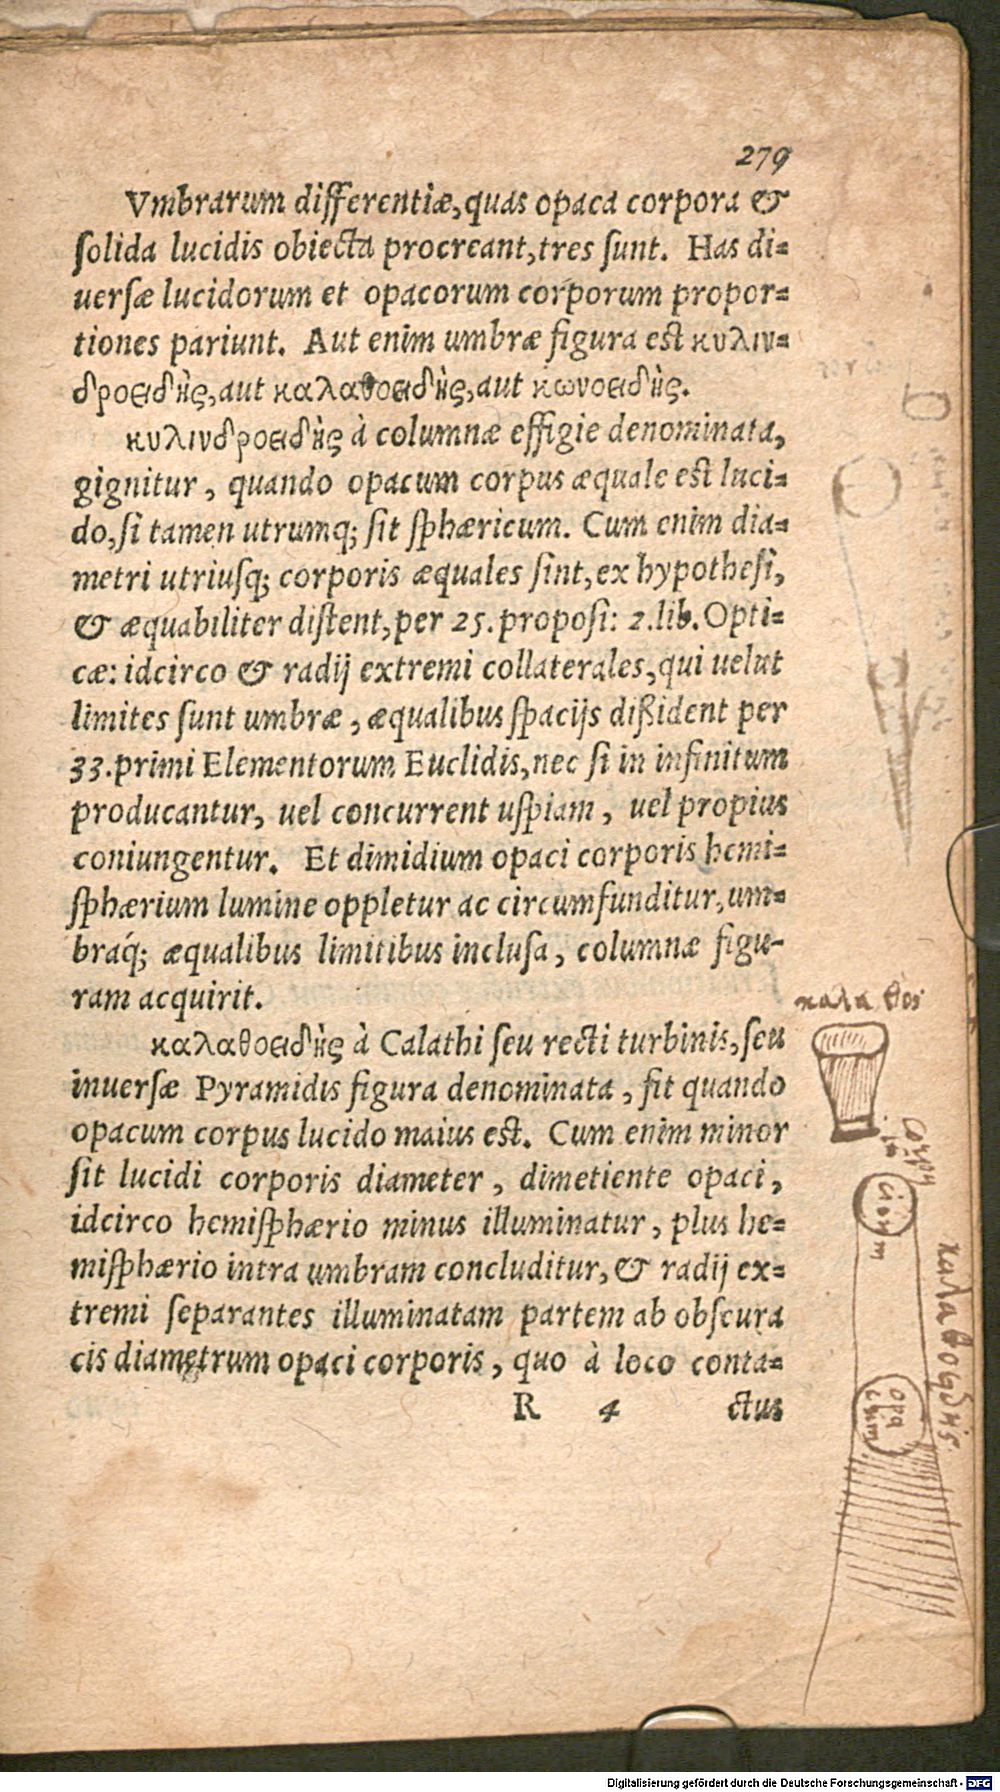 279
Vmbrarum differentiæ, quas opaca corpora &
solida lucidis obiecta procreant, tres sunt. Has di=
uersæ lucidorum et opacorum corporum propor=
tiones pariunt. Aut enim umbræ figura est κυλιν=
δροειδὴς, aut καλαθοειδὴς, aut κωνοειδὴς.
κυλινδροειδὴς à columnæ effigie denominata,
gignitur, quando opacum corpus æquale est luci=
do, si tamen utrumq; sit sphæricum. Cum enim dia=
metri utriusq; corporis æquales sint, ex hypothesi,
& æquabiliter distent, per 25. proposi: 2. lib. Opti=
cæ: idcirco & radij extremi collaterales, qui uelut
limites sunt umbræ, æqualibus spacijs dißident per
33. primi Elementorum Euclidis, nec si in infinitum
producantur, uel concurrent uspiam, uel propius
coniungentur. Et dimidium opaci corporis hemi=
sphærium lumine oppletur ac circumfunditur, um=
braq́; æqualibus limitibus inclusa, columnæ figu-
ram acquirit.
καλαθοειδὴς à Calathi seu recti turbinis, seu
inuersæ Pyramidis figura denominata, fit quando
opacum corpus lucido maius est. Cum enim minor
sit lucidi corporis diameter, dimetiente opaci,
idcirco hemisphærio minus illuminatur, plus he=
misphærio intra umbram concluditur, & radij ex=
tremi separantes illuminatam partem ab obscura
cis diametrum opaci corporis, quo à loco conta=
R 4 ctus
καλαθος
καλαθοειδὴς
opa
cum
Digitalisierung gefördert durch die Deutsche Forschungsgemeinschaft - DFG